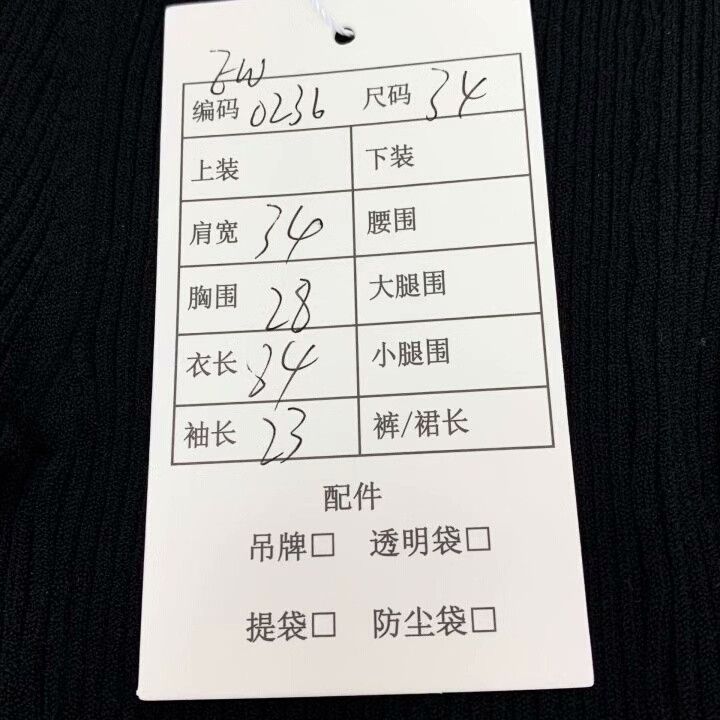 EW
编码 0236 尺码 34
上装 下装
肩宽 34 腰围
胸围 28 大腿围
衣长 84 小腿围
袖长 23 裤/裙长
配件
吊牌□ 透明袋□
提袋□ 防尘袋□